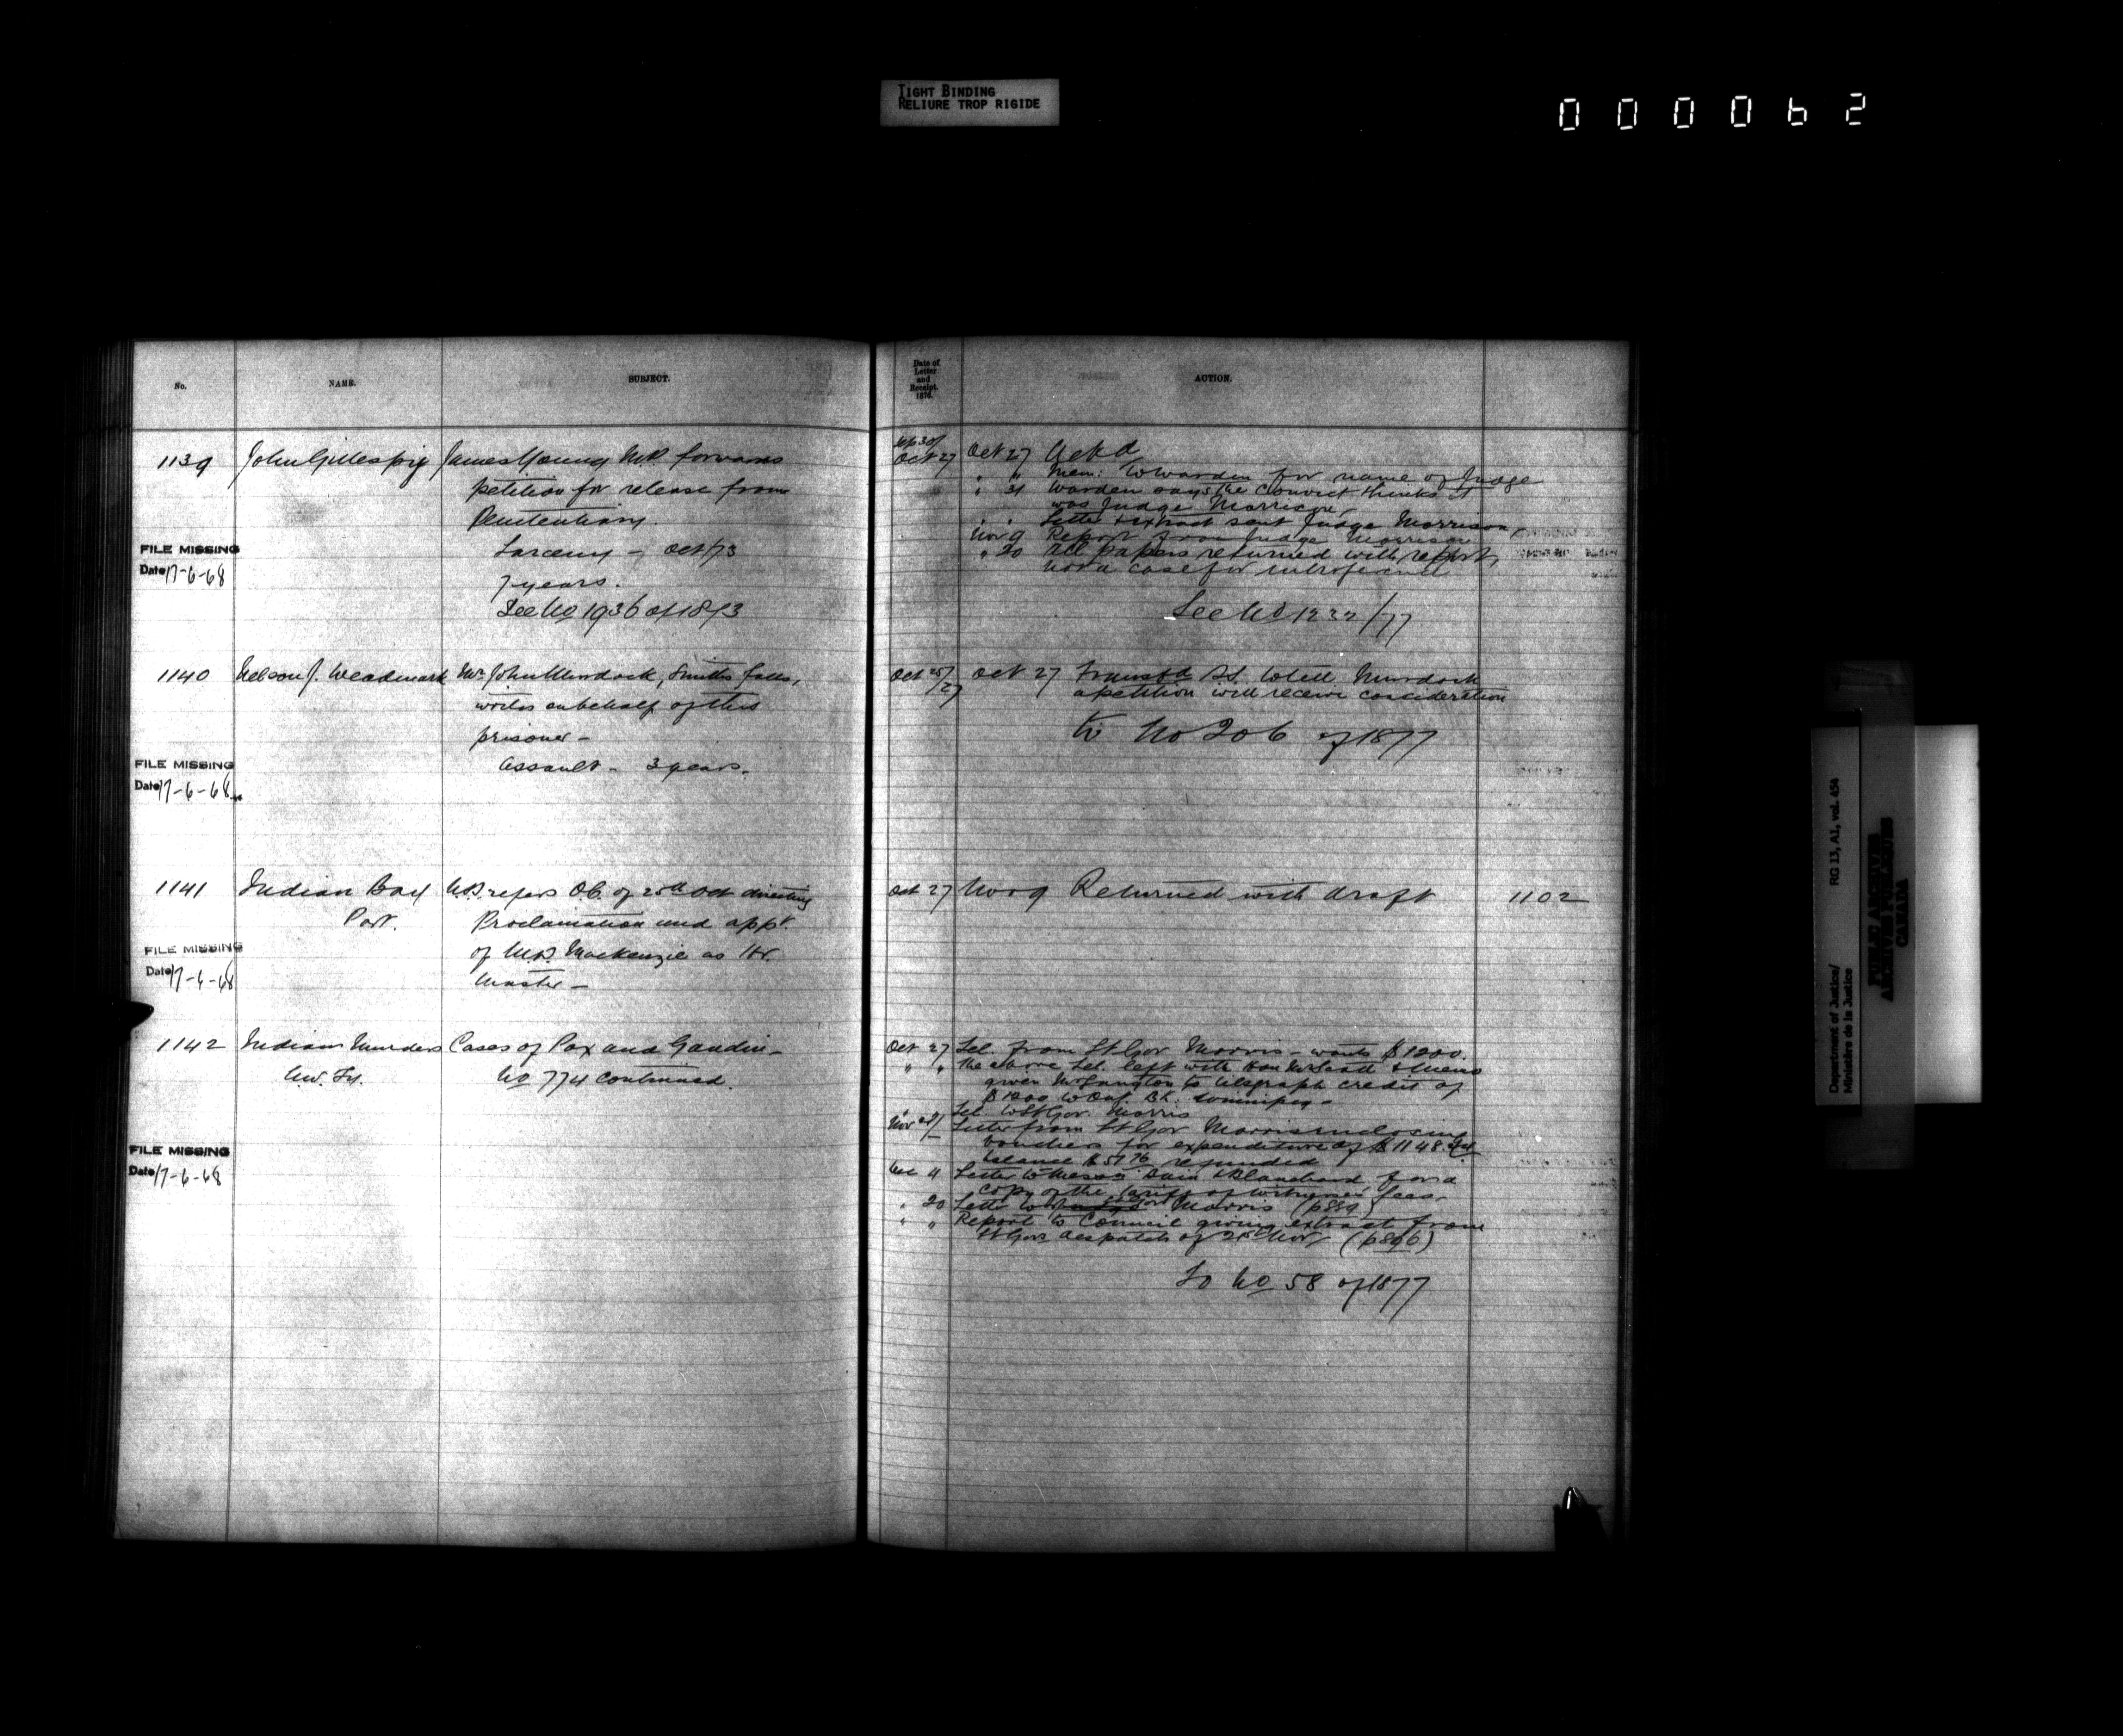 TIGHT BINDING
RELIURE TROP RIGIDE
000062
No.
NAME.
SUBJECT.
1139 John Gillespie James Young M.P. forwards
petition for release from
Penitentiary.
Larceny – Oct/73
7 years.
See No 1936 of 1873
FILE MISSING
Date 17-6-68
1140 Nelson J. Weadmark Mr. John Murdock, Smiths falls,
writes on behalf of this
prisoner –
Assault – 3 years.
FILE MISSING
Date 17-6-68
1141 Indian Bay refers O.C. of 25th Oct directing
Port. Proclamation and appt.
of Mackenzie as Hr.
Master –
FILE MISSING
Date 17-6-68
1142 Indian Murders Cases of Pox and Gaudin –
N.W. Ty. No 774 continued.
FILE MISSING
Date 17-6-68
Date of
Letter
and
Receipt.
1876.
ACTION.
Sep 30/
Oct 27 Oct 27 Ackd
" " Mem: to Warden for name of Judge
" 31 Warden says the Convict thinks it
was Judge Morrison,
" " Letter & extract sent Judge Morrison,
Nov 9 Report from Judge Morrison
" 20 All papers returned with report,
not a case for interference
See No 1232/77
Oct 25/27 Oct 27 to tell Murdock
a petition will receive consideration
to No 206 of 1877
Oct 27 Nov 9 Returned with draft 1102
Oct 27 Tel. from Lt Gov Morris – wants $1200.
" " The above Tel. left with Hon Mr Scott & Mem
given Mr Langton to telegraph credit of
$1200 to Bk. Winnipeg –
" Tel. to Lt Gov. Morris
Nov 21/ Letter from Lt Gov Morris enclosing
vouchers for expenditure of $1148.24
balance $51.76 refunded
Dec 4 Letter to Messrs Bain & Blanchard for a
copy of the tariff of witnesses fees.
" 20 Letter to Gov Morris (p889)
" " Report to Council giving extract from
Lt Govs despatch of 21st Nov, (p896)
To No 58 of 1877
Department of Justice/
Ministère de la Justice
RG 13, A1, vol. 454
PUBLIC ARCHIVES
ARCHIVES PUBLIQUES
CANADA